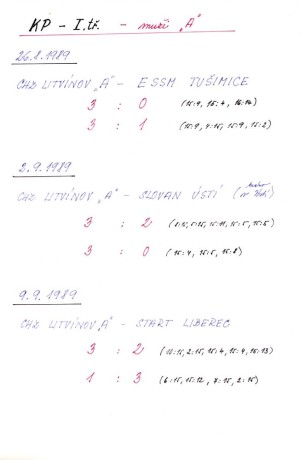 KP - I.tř. - muži "A"
26.8.1989
CHZ LITVÍNOV "A" - ESSM TUŠIMICE
3 : 0 (15:9, 15:4, 16:14)
3 : 1 (15:9, 4:15, 15:9, 15:2)
2.9.1989
CHZ LITVÍNOV "A" - SLOVAN ÚSTÍ (
3 : 2 5:15, 15:11, 15:5, 15:5)
3 : 0 (15:4, 15:5, 15:8)
9.9.1989
CHZ LITVÍNOV "A" - START LIBEREC
3 : 2 2:15, 15:4, 15:4, 15:13)
1 : 3 (6:15, 15:12, 7:15, 2:15)